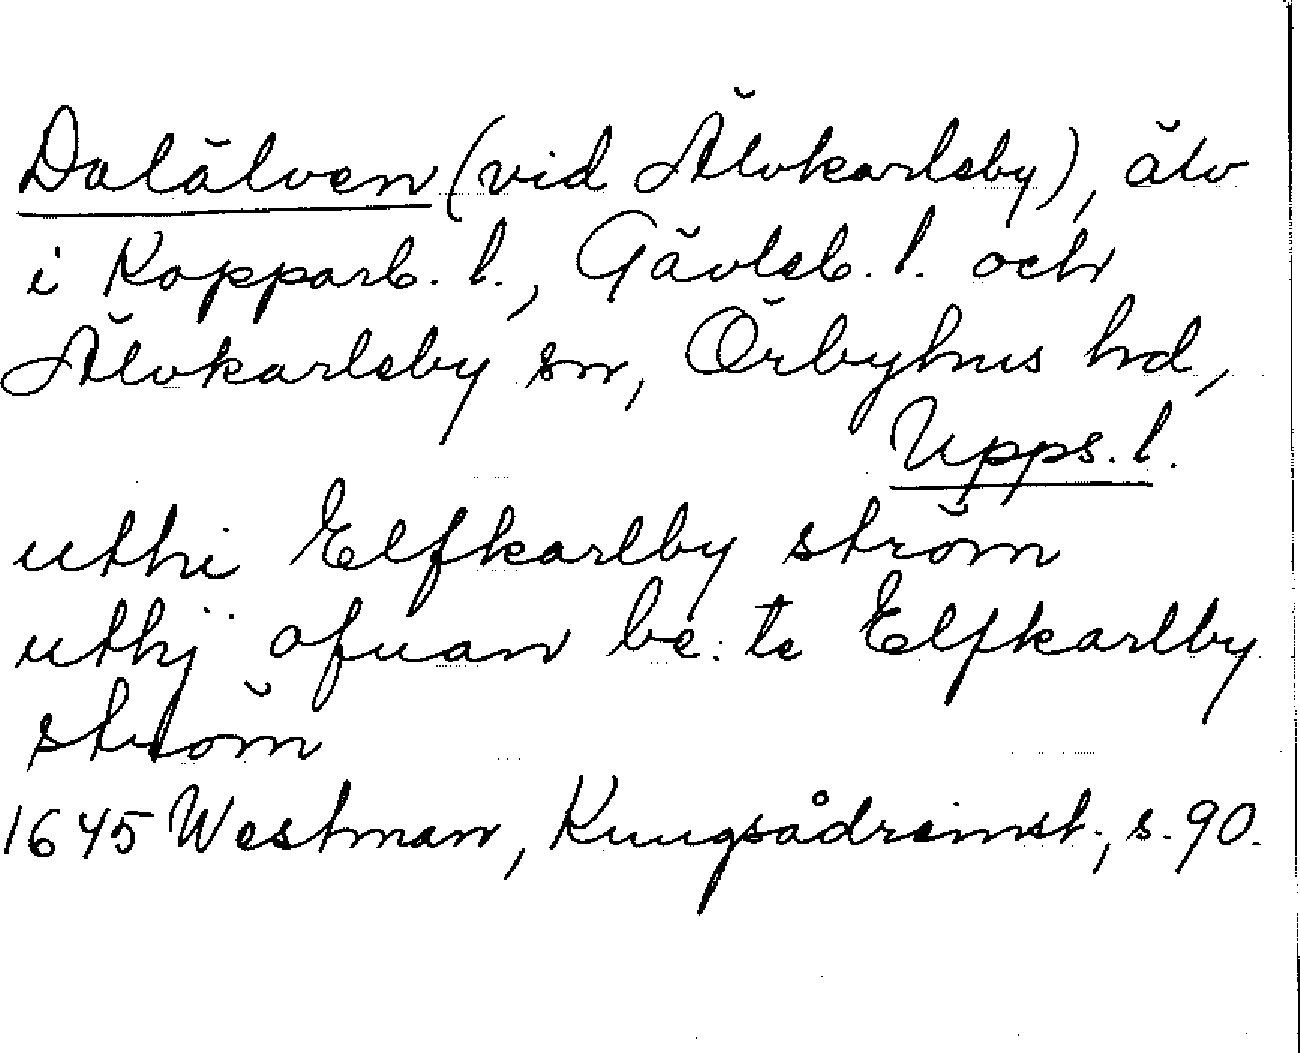 Dalälven (vid Älvkarleby), älv
i Kopparb. l., Gävleb. l. och
Älvkarleby sn, Örbyhus hd,
Upps. l.
uthi Elfkarlby ström
uthj ofuan be: te Elfkarlby
ström
1645 Westman, Kungsådreinst., s. 90.